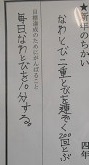 ★新年のちかい 四年
なわとび二重とびを連ぞく200回とぶ
目標達成のためにがんばること
毎日なわとびを10分する。